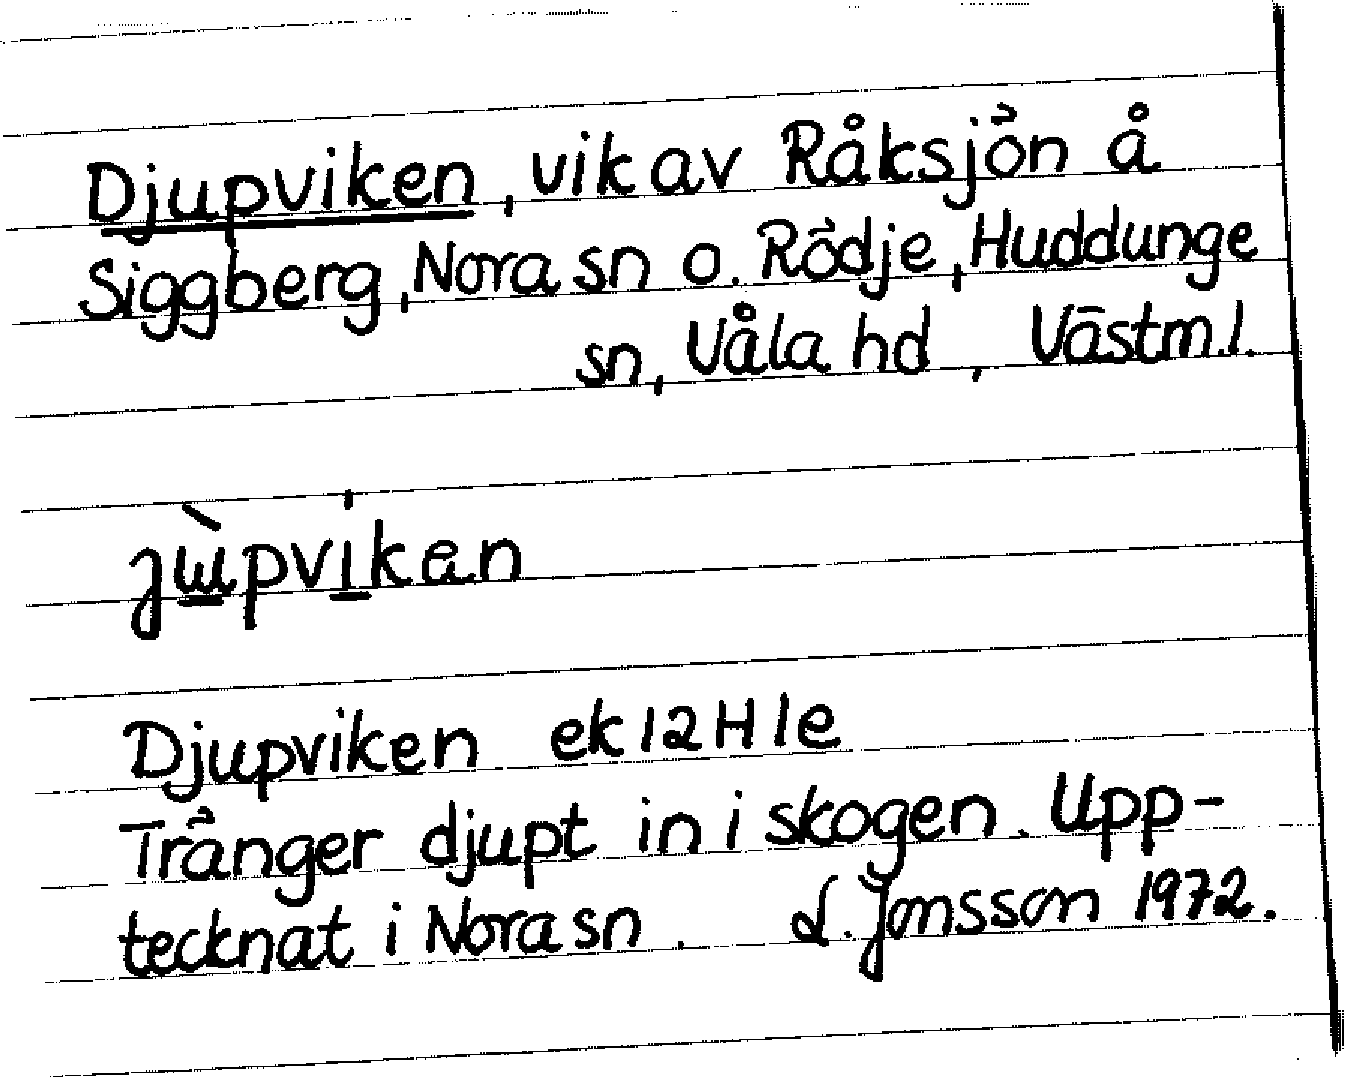 Djupviken, vik av Råksjön å
Siggberg, Nora sn o. Rödje, Huddunge
sn, Våla hd, Västm. l.
jɯ̀pvikən
Djupviken ek 12 H 1e
Tränger djupt in i skogen. Upp-
tecknat i Nora sn. L. Jonsson 1972.